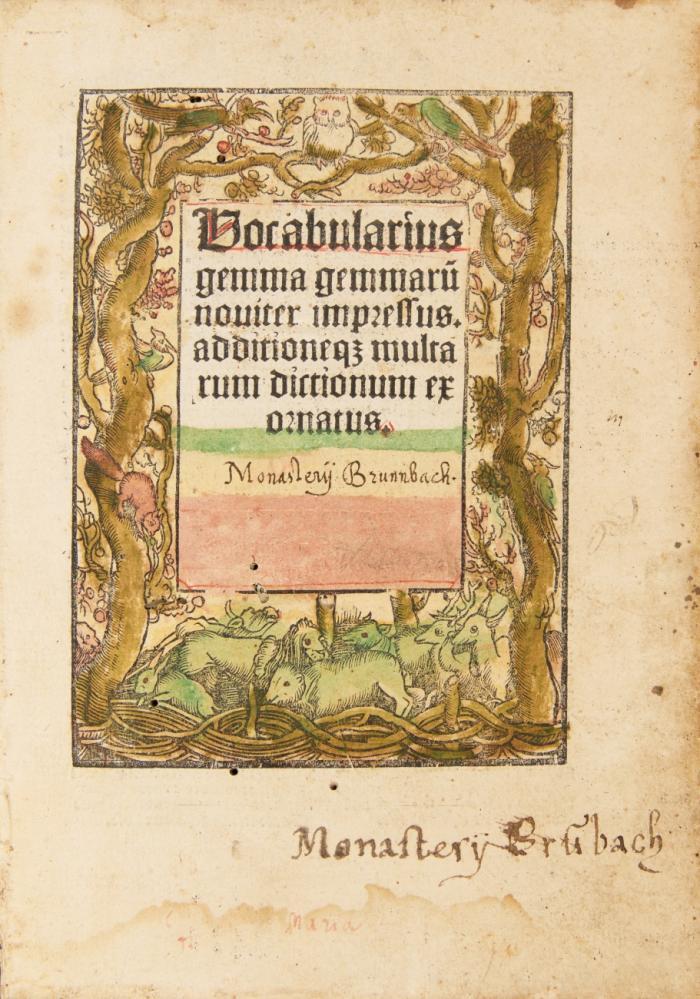 Vocabularius
gemma gemmarū
noviter impressus.
additioneqꝫ multa
rum dictionum ex
ornatus.
Monasterÿ Brunnbach.
Monasterÿ Brūbach
Maria